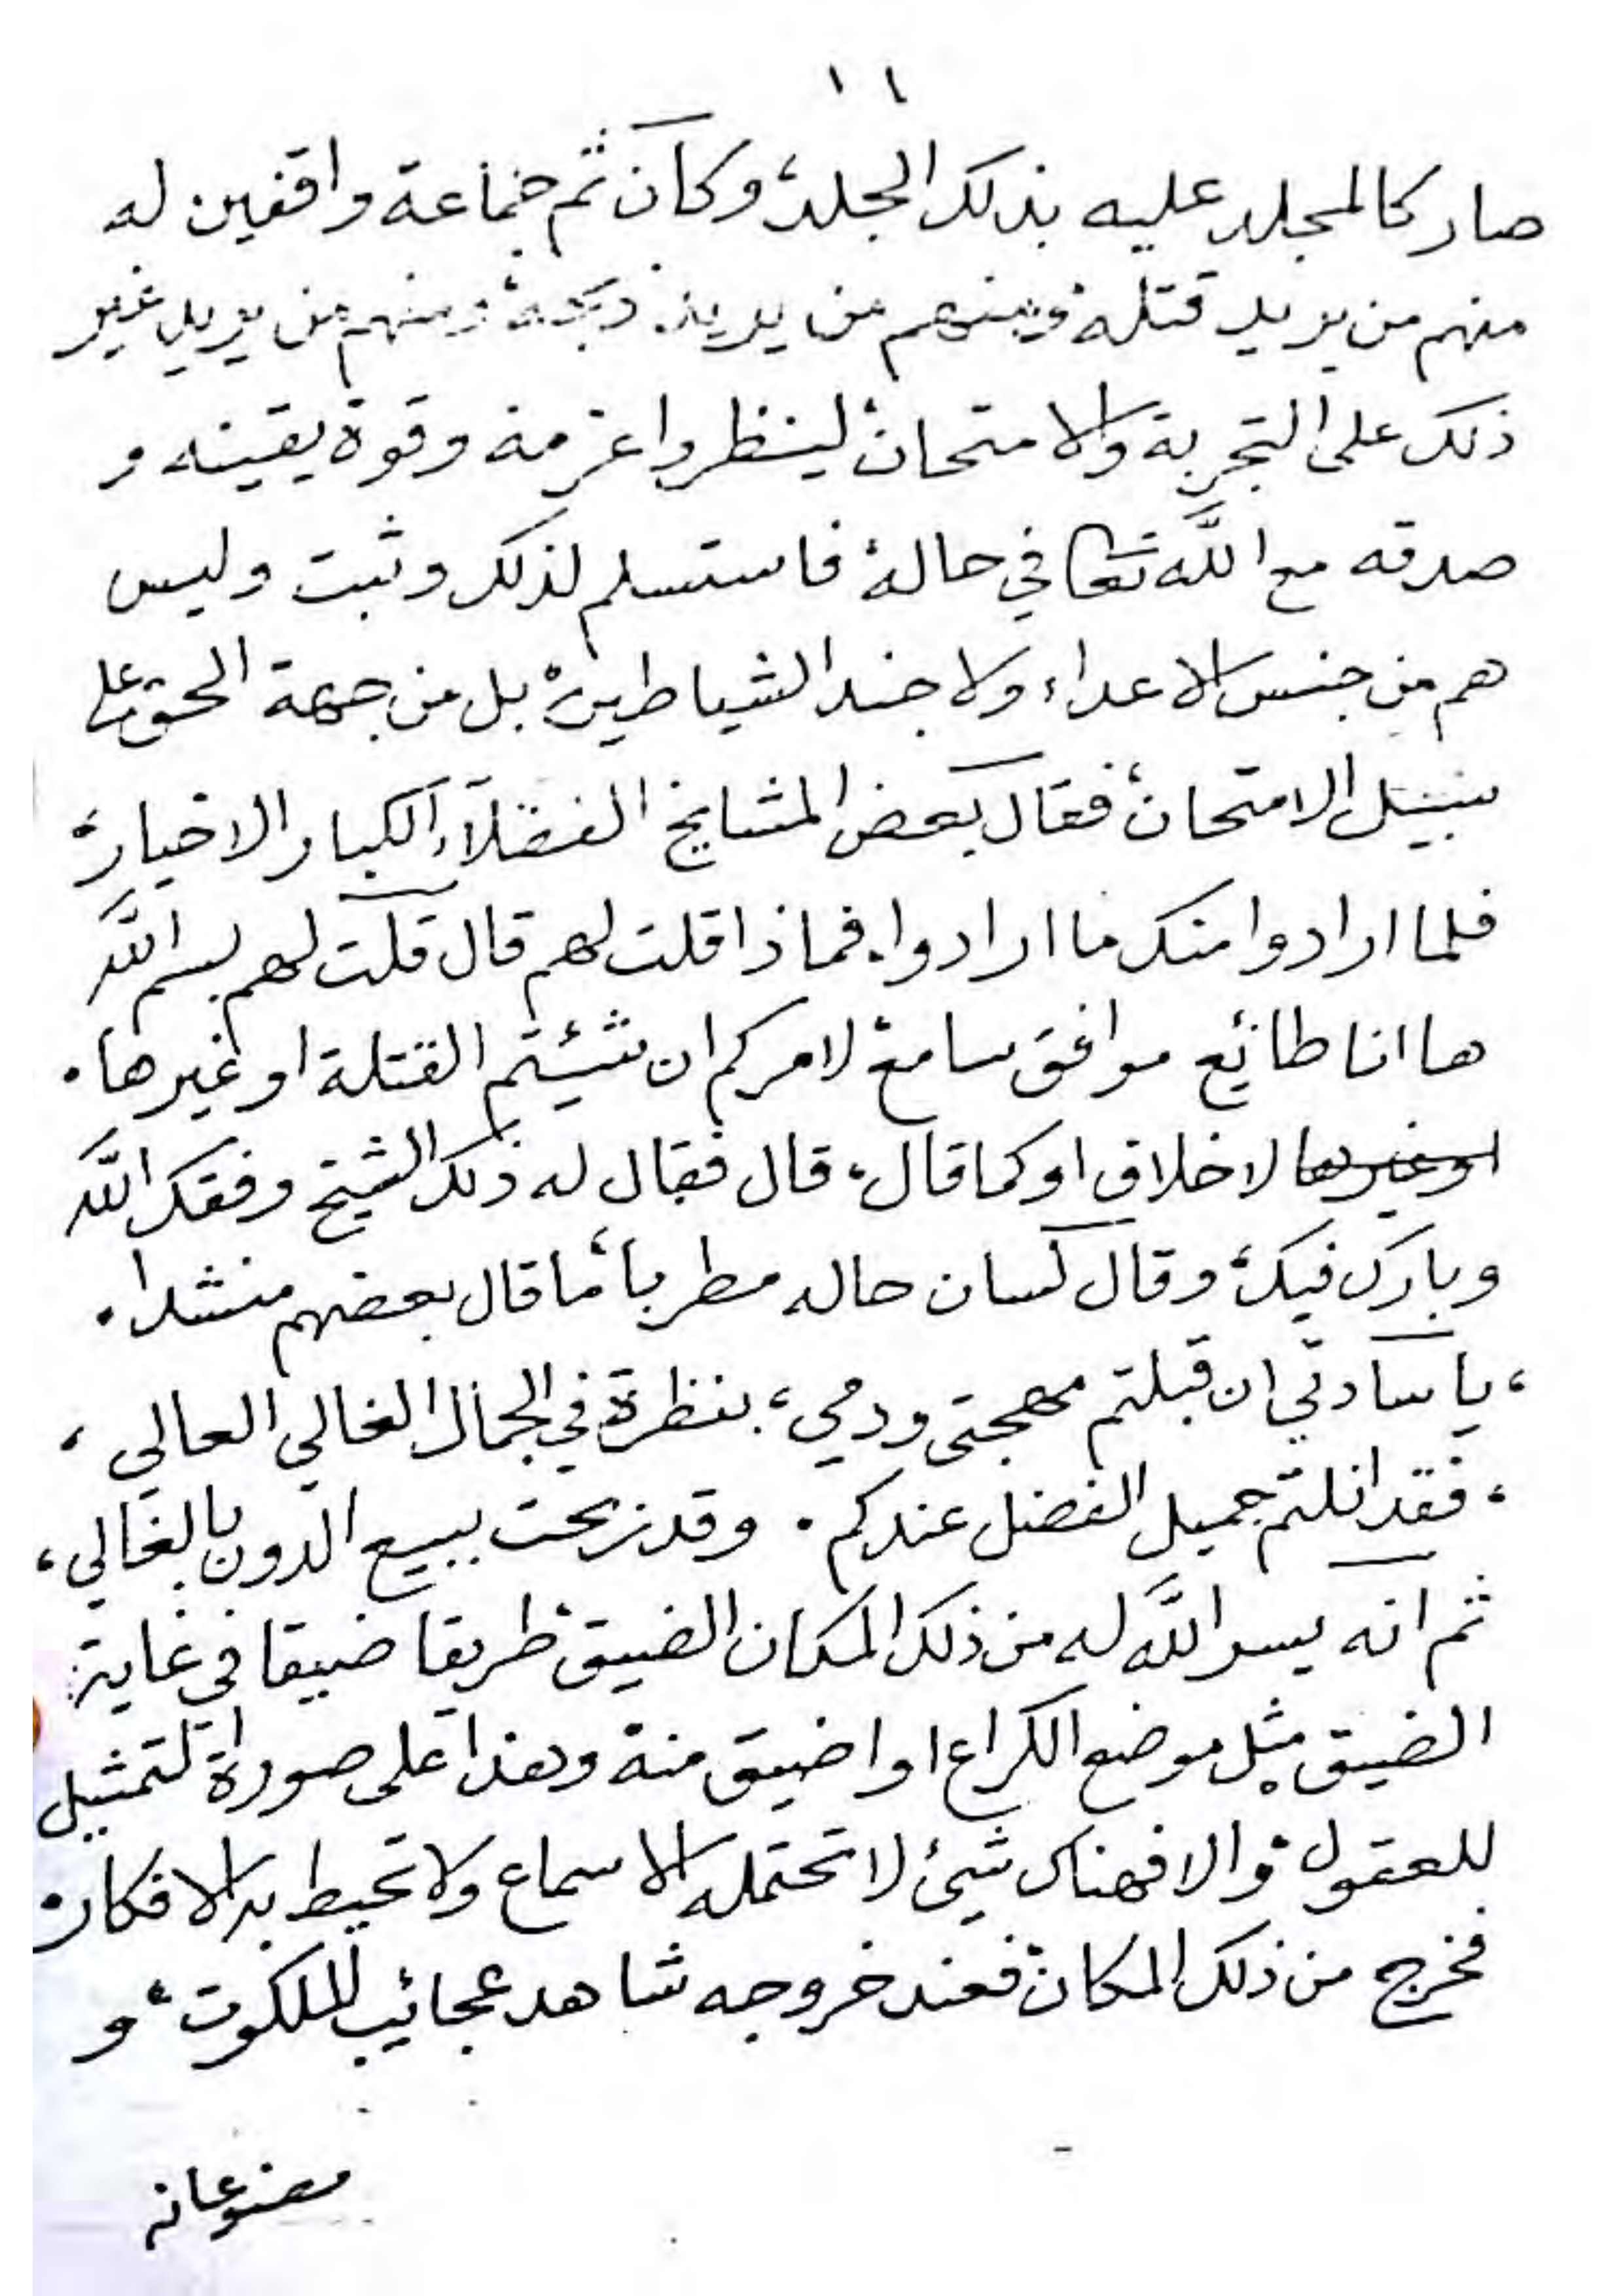 ١١
صار كالمجلد عليه بذلك الجلد، وكان ثم جماعة واقفين له
منهم من يريد قتله ومنهم من يريد ذبحه ومنهم من يريد غير
ذلك على التجربة والامتحان لينظروا عزمه وقوة يقينه و
صدقه مع اللّه تعا في حاله فاستسلم لذلك وثبت وليس
هم من جنس الاعداء ولا جند الشياطين بل من جهة الحق على
سبيل الامتحان فقال بعض المشايخ الفضلآء الكبار الاخيار،
فلما ارادوا منك ما ارادوا، فماذا قلت لهم قال قلت لهم بسم اللّه
ها انا طائع موافق سامع لامركم ان شئتم القتلة او غيرها.
او غيرها لا خلاف او كما قال، قال فقال له ذلك الشيخ وفقك اللّه
وبارك فيك، وقال لسان حاله مطربا، ما قال بعضهم منشدا.
، يا سادتي ان قبلتم مهجتى ودمي، بنظرة في الجمال الغالي العالي ،
، فقد انلتم جميل الفضل عندكم . وقد ربحت ببيع الدون بالغالي ،
ثم انه يسر اللّه له من ذلك المكان الضيق طريقا ضيقا في غاية
الضيق مثل موضع الكراع او اضيق منه وهذا على صورة التمثيل
للعقول والا فهناك شيئ لا تحتمله الاسماع ولا تحيط به الافكار
فخرج من ذلك المكان فعند خروجه شاهد عجائب الملكوت، و